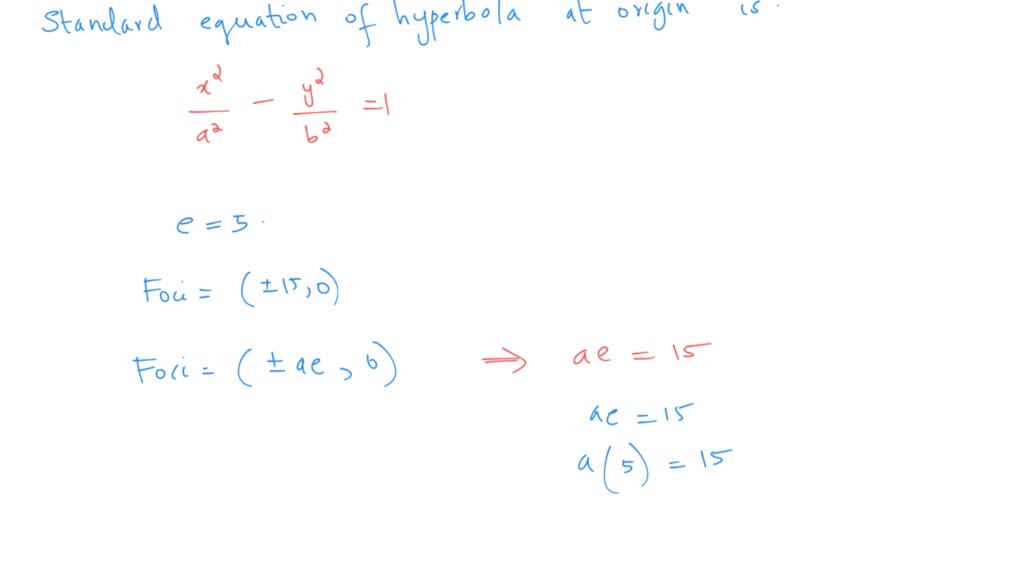 Standard equation of hyperbola at origin is.
x²/a² − y²/b² = 1
e = 5.
Foci = (±15, 0)
Foci = (±ae, 0) ⟹ ae = 15
ae = 15
a(5) = 15